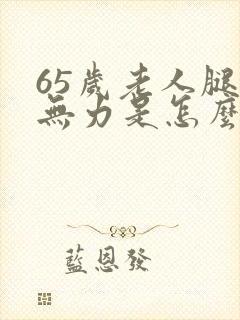 65歲老人腿
無力是怎麼
藍恩發